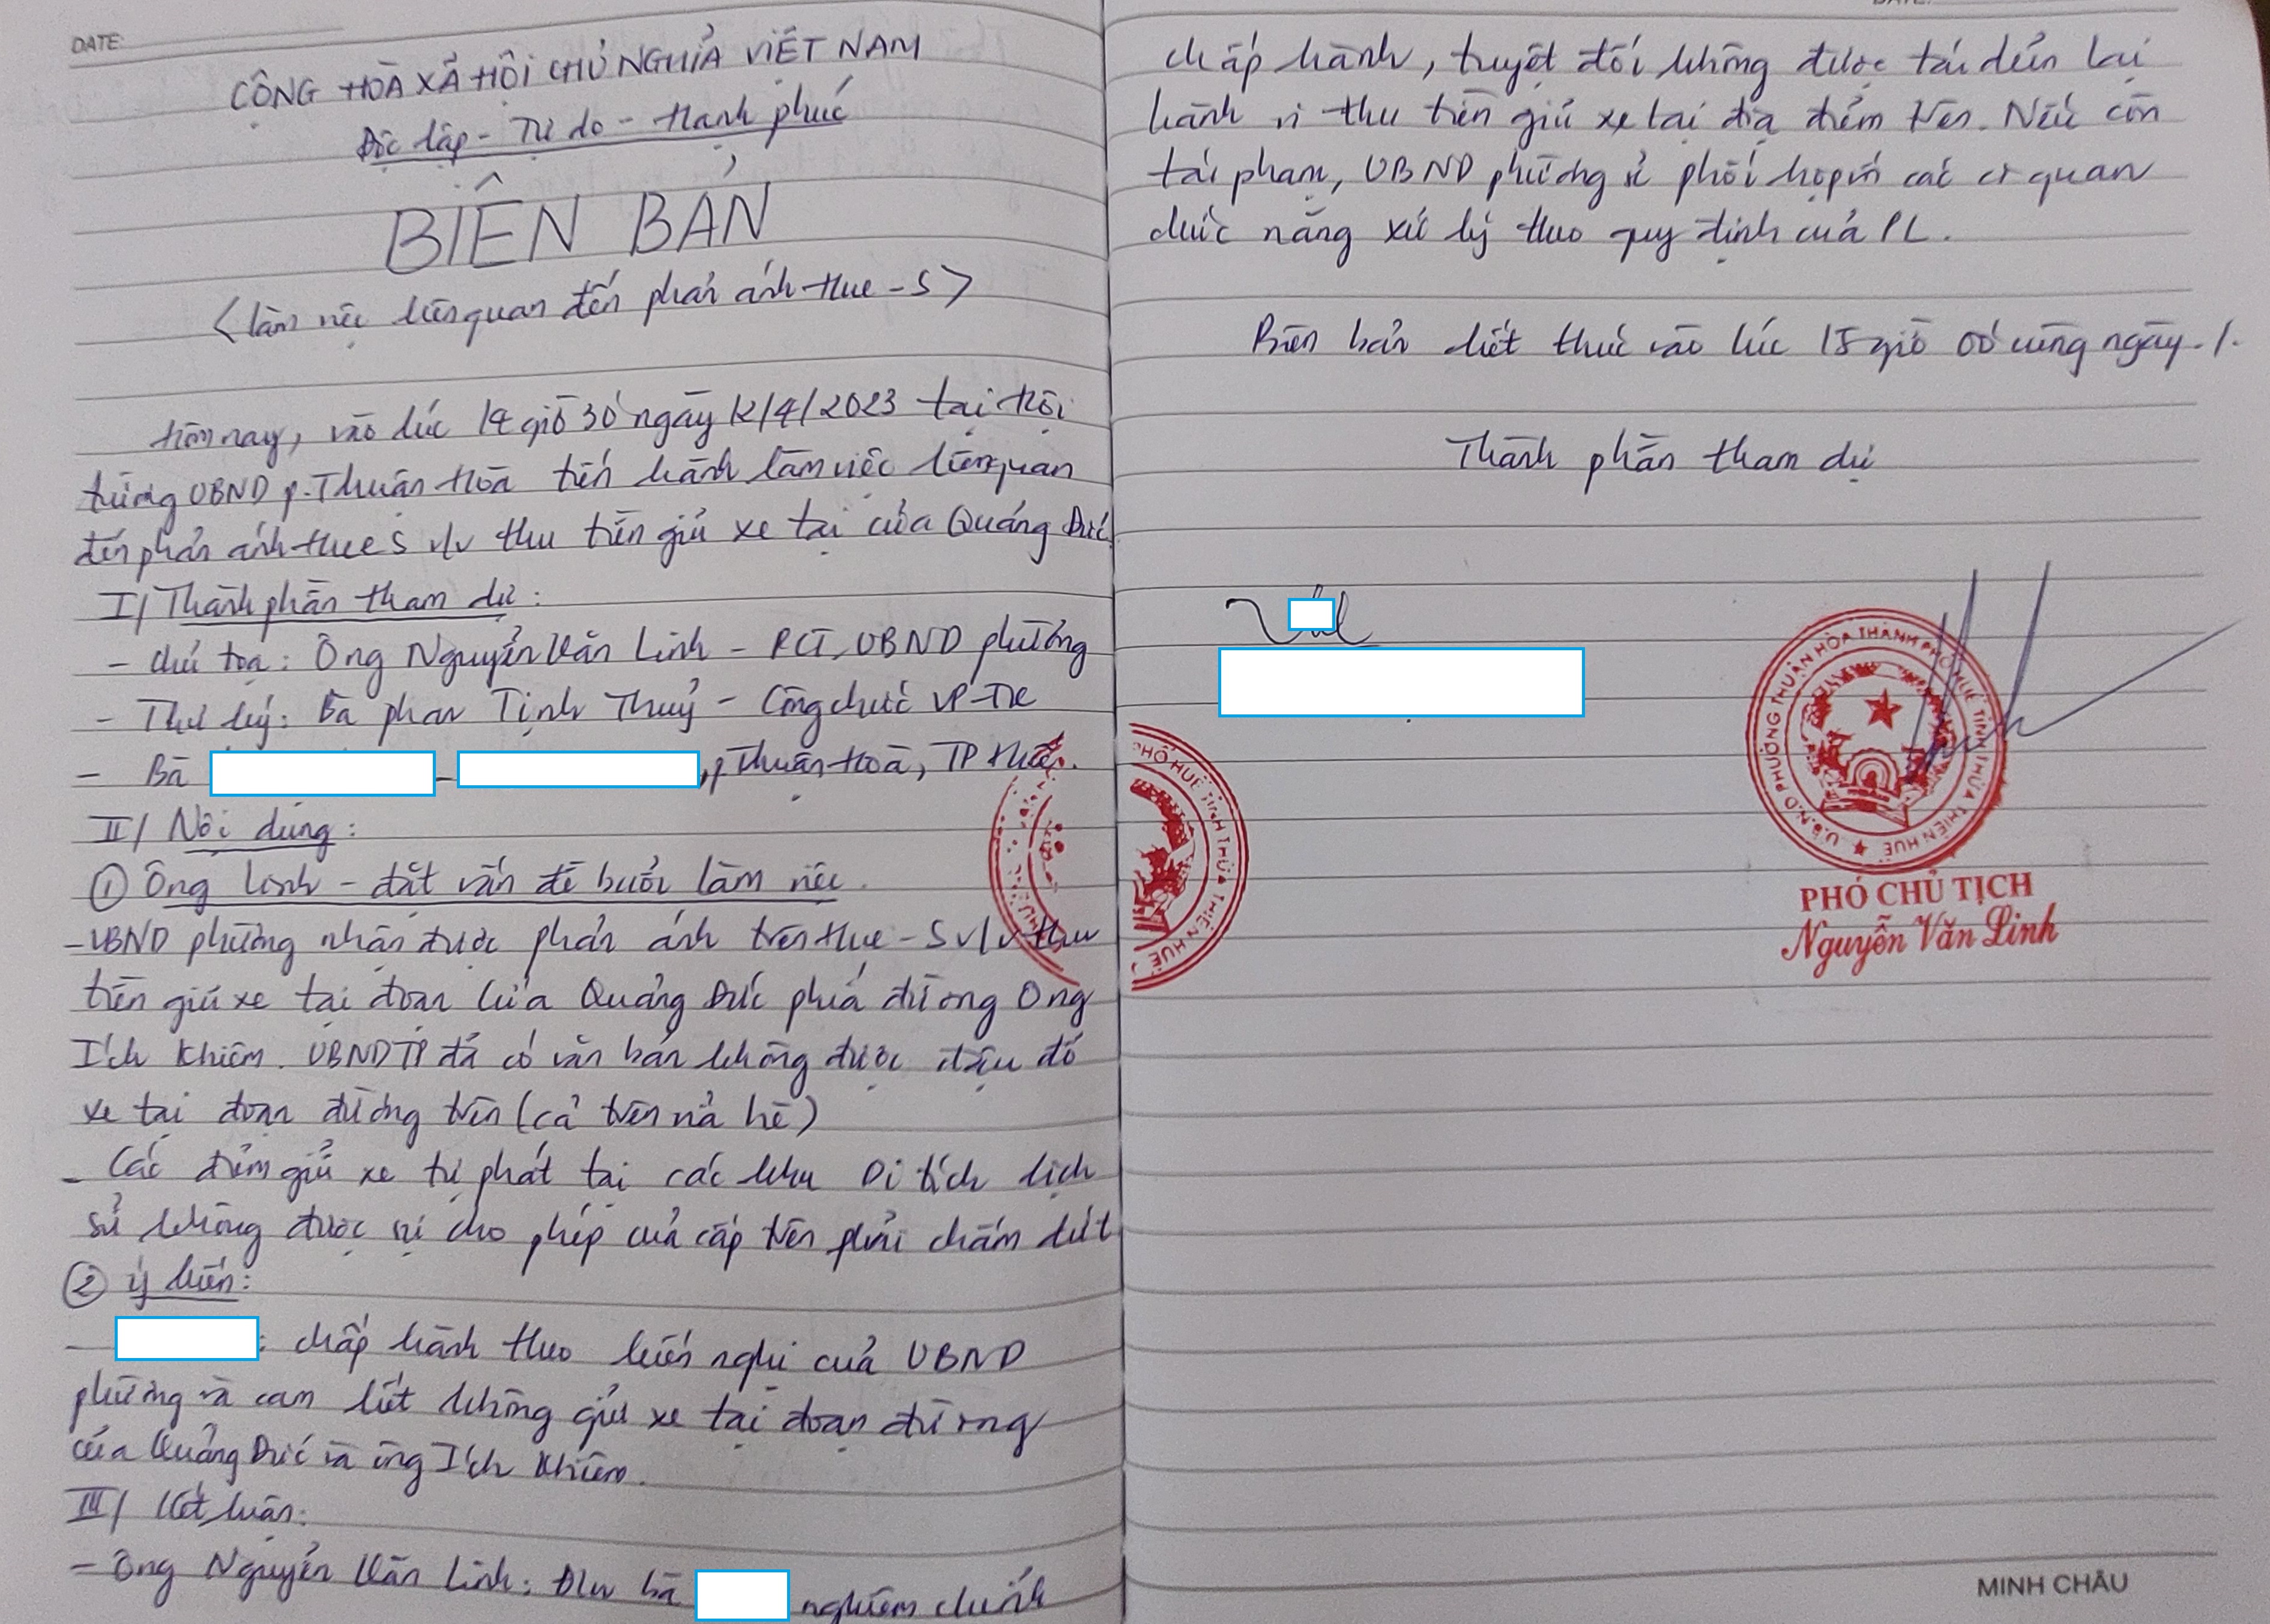 DATE:
CỘNG HOÀ XÃ HỘI CHỦ NGHĨA VIỆT NAM
Độc lập - Tự do - Hạnh phúc
BIÊN BẢN
<làm việc liên quan đến phản ánh Hue-S>
Hôm nay, vào lúc 14 giờ 30 ngày 12/4/2023 tại Hội
trường UBND p.Thuận Hoà tiến hành làm việc liên quan
đến phản ánh Hue S v/v thu tiền giữ xe tại cửa Quảng Đức
I/ Thành phần tham dự:
- Chủ toạ: Ông Nguyễn Văn Linh - PCT, UBND phường
- Thư ký: Bà Phan Tịnh Thuỷ - Công chức VP-TK
- Bà - , p Thuận Hoà, TP Huế.
II/ Nội dung:
① Ông Linh - đặt vấn đề buổi làm việc.
- UBND phường nhận được phản ánh trên Hue-S v/v thu
tiền giữ xe tại đoạn Cửa Quảng Đức phía đường Ông
Ích Khiêm. UBND TP đã có văn bản không được đậu đỗ
xe tại đoạn đường trên (cả trên vỉa hè)
- Các điểm giữ xe tự phát tại các khu Di tích lịch
sử không được sự cho phép của cấp trên phải chấm dứt
② Ý kiến:
- : chấp hành theo kiến nghị của UBND
phường và cam kết không giữ xe tại đoạn đường
cửa Quảng Đức và ông Ích Khiêm.
III/ Kết luận:
- Ông Nguyễn Văn Linh: bà nghiêm chỉnh
DATE:
chấp hành, tuyệt đối không được tái diễn lại
hành vi thu tiền giữ xe tại địa điểm trên. Nếu còn
tái phạm, UBND phường sẽ phối hợp với các cơ quan
chức năng xử lý theo quy định của PL.
Biên bản kết thúc vào lúc 15 giờ 00 cùng ngày./.
Thành phần tham dự
U.B.N.D PHƯỜNG THUẬN HÒA THÀNH PHỐ HUẾ TỈNH THỪA THIÊN HUẾ
PHỐ HUẾ TỈNH THỪA THIÊN HUẾ
PHÓ CHỦ TỊCH
Nguyễn Văn Linh
MINH CHÂU